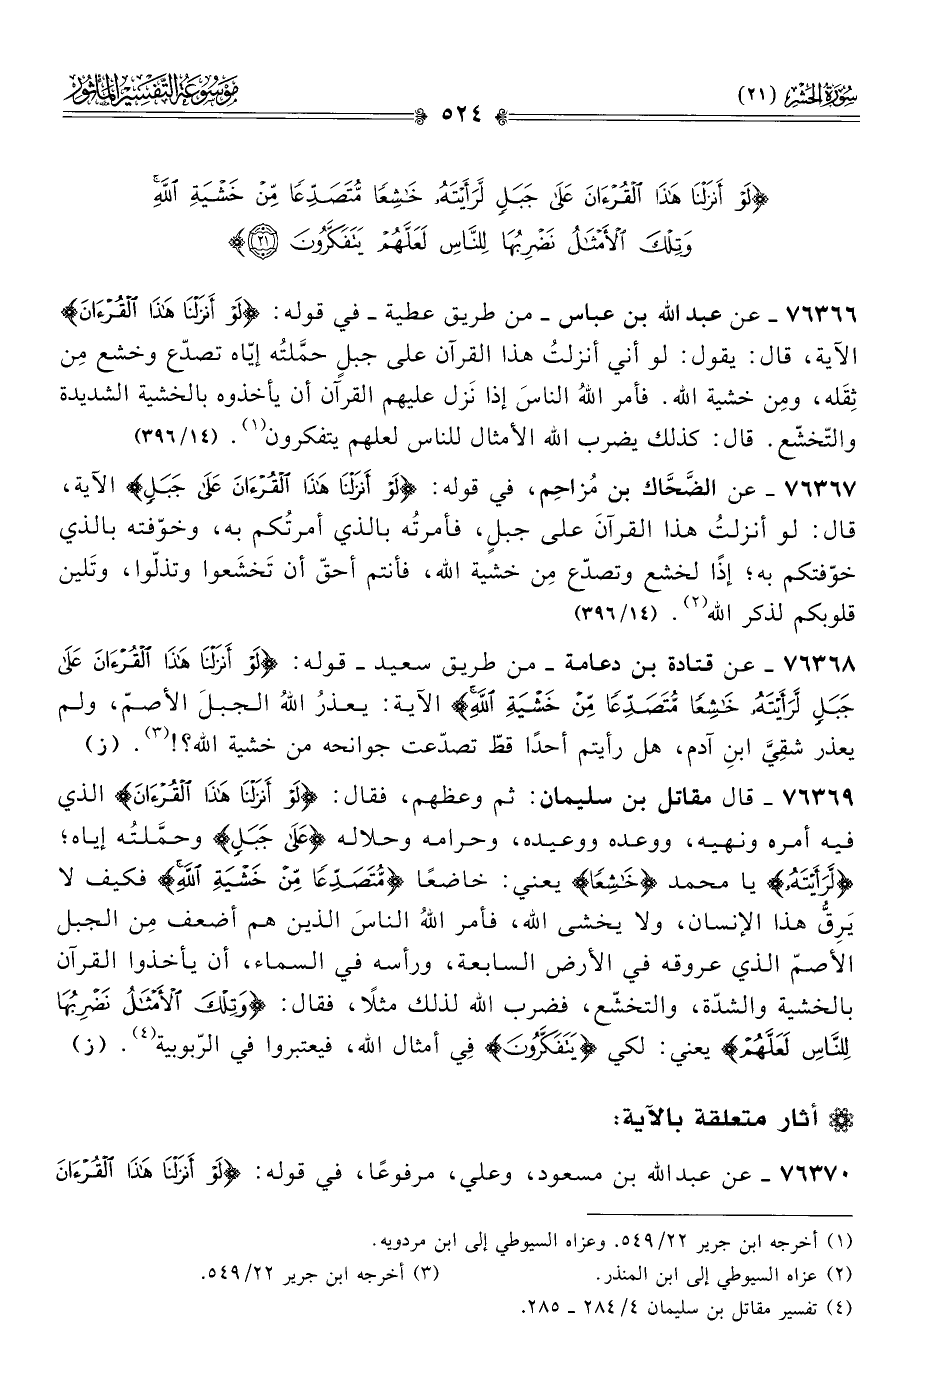 سورة الحشر (٢١)
موسوعة التفسير المأثور
٥٢٤
﴿لَوْ أَنزَلْنَا هَٰذَا الْقُرْءَانَ عَلَىٰ جَبَلٍ لَّرَأَيْتَهُۥ خَٰشِعًا مُّتَصَدِّعًا مِّنْ خَشْيَةِ اللَّهِ ۚ
وَتِلْكَ الْأَمْثَٰلُ نَضْرِبُهَا لِلنَّاسِ لَعَلَّهُمْ يَتَفَكَّرُونَ ٢١﴾
٧٦٣٦٦ ـ عن عبد الله بن عباس ـ من طريق عطية ـ في قوله: ﴿لَوْ أَنزَلْنَا هَٰذَا الْقُرْءَانَ﴾
الآية، قال: يقول: لو أني أنزلتُ هذا القرآن على جبلٍ حمَّلتُه إيّاه تصدّع وخشع مِن
ثِقَله، ومِن خشية الله. فأمر اللهُ الناسَ إذا نَزل عليهم القرآن أن يأخذوه بالخشية الشديدة
والتّخشّع. قال: كذلك يضرب الله الأمثال للناس لعلهم يتفكرون(١). (٣٩٦/١٤)
٧٦٣٦٧ ـ عن الضَّحَّاك بن مُزاحِم، في قوله: ﴿لَوْ أَنزَلْنَا هَٰذَا الْقُرْءَانَ عَلَىٰ جَبَلٍ﴾ الآية،
قال: لو أنزلتُ هذا القرآنَ على جبلٍ، فأمرتُه بالذي أمرتُكم به، وخوّفته بالذي
خوّفتكم به؛ إذًا لخشع وتصدّع مِن خشية الله، فأنتم أحقّ أن تَخشَعوا وتذلّوا، وتَلين
قلوبكم لذكر الله(٢). (٣٩٦/١٤)
٧٦٣٦٨ ـ عن قتادة بن دعامة ـ من طريق سعيد ـ قوله: ﴿لَوْ أَنزَلْنَا هَٰذَا الْقُرْءَانَ عَلَىٰ
جَبَلٍ لَّرَأَيْتَهُۥ خَٰشِعًا مُّتَصَدِّعًا مِّنْ خَشْيَةِ اللَّهِ ۚ﴾ الآية: يعذرُ اللهُ الجبلَ الأصمّ، ولم
يعذر شقِيَّ ابنِ آدم، هل رأيتم أحدًا قطّ تصدّعت جوانحه من خشية الله؟!(٣). (ز)
٧٦٣٦٩ ـ قال مقاتل بن سليمان: ثم وعظهم، فقال: ﴿لَوْ أَنزَلْنَا هَٰذَا الْقُرْءَانَ﴾ الذي
فيه أمره ونهيه، ووعده ووعيده، وحرامه وحلاله ﴿عَلَىٰ جَبَلٍ﴾ وحمَّلتُه إياه؛
﴿لَّرَأَيْتَهُۥ﴾ يا محمد ﴿خَٰشِعًا﴾ يعني: خاضعًا ﴿مُّتَصَدِّعًا مِّنْ خَشْيَةِ اللَّهِ ۚ﴾ فكيف لا
يَرِقُّ هذا الإنسان، ولا يخشى الله، فأمر اللهُ الناسَ الذين هم أضعف مِن الجبل
الأصمّ الذي عروقه في الأرض السابعة، ورأسه في السماء، أن يأخذوا القرآن
بالخشية والشدّة، والتخشّع، فضرب الله لذلك مثلًا، فقال: ﴿وَتِلْكَ الْأَمْثَٰلُ نَضْرِبُهَا
لِلنَّاسِ لَعَلَّهُمْ﴾ يعني: لكي ﴿يَتَفَكَّرُونَ﴾ فِي أمثال الله، فيعتبروا في الرّبوبية(٤). (ز)
آثار متعلقة بالآية:
٧٦٣٧٠ ـ عن عبدالله بن مسعود، وعلي، مرفوعًا، في قوله: ﴿لَوْ أَنزَلْنَا هَٰذَا الْقُرْءَانَ
(١) أخرجه ابن جرير ٥٤٩/٢٢. وعزاه السيوطي إلى ابن مردويه.
(٢) عزاه السيوطي إلى ابن المنذر. (٣) أخرجه ابن جرير ٥٤٩/٢٢.
(٤) تفسير مقاتل بن سليمان ٢٨٤/٤ ـ ٢٨٥.